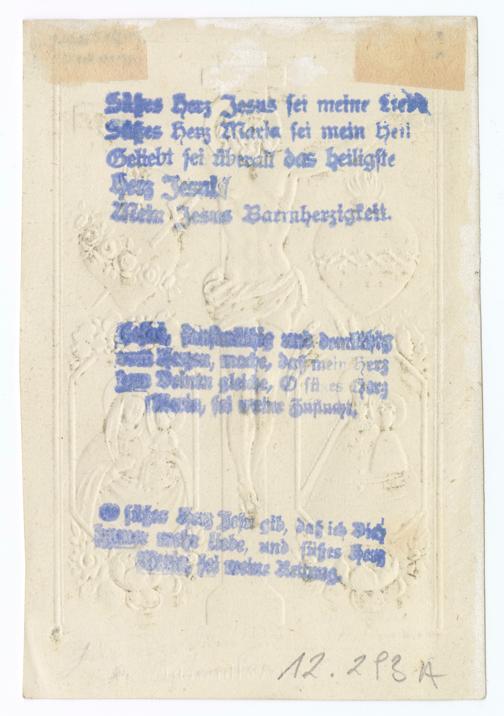 Süßes Herz Jesus sei meine Liebe
Süßes Herz Maria sei mein Heil
Geliebt sei überall das heiligste
Herz Jesu!
Mein Jesus Barmherzigkeit.
Jesus, sanftmütig und demütig
vom Herzen, mache, daß mein Herz
dem Deinen gleiche, O süßes Herz
Maria, sei meine Zuflucht.
O süßes Herz Jesu gib, daß ich Dich
immer mehr liebe, und süßes Herz
Maria, sei meine Rettung.
12.293 A